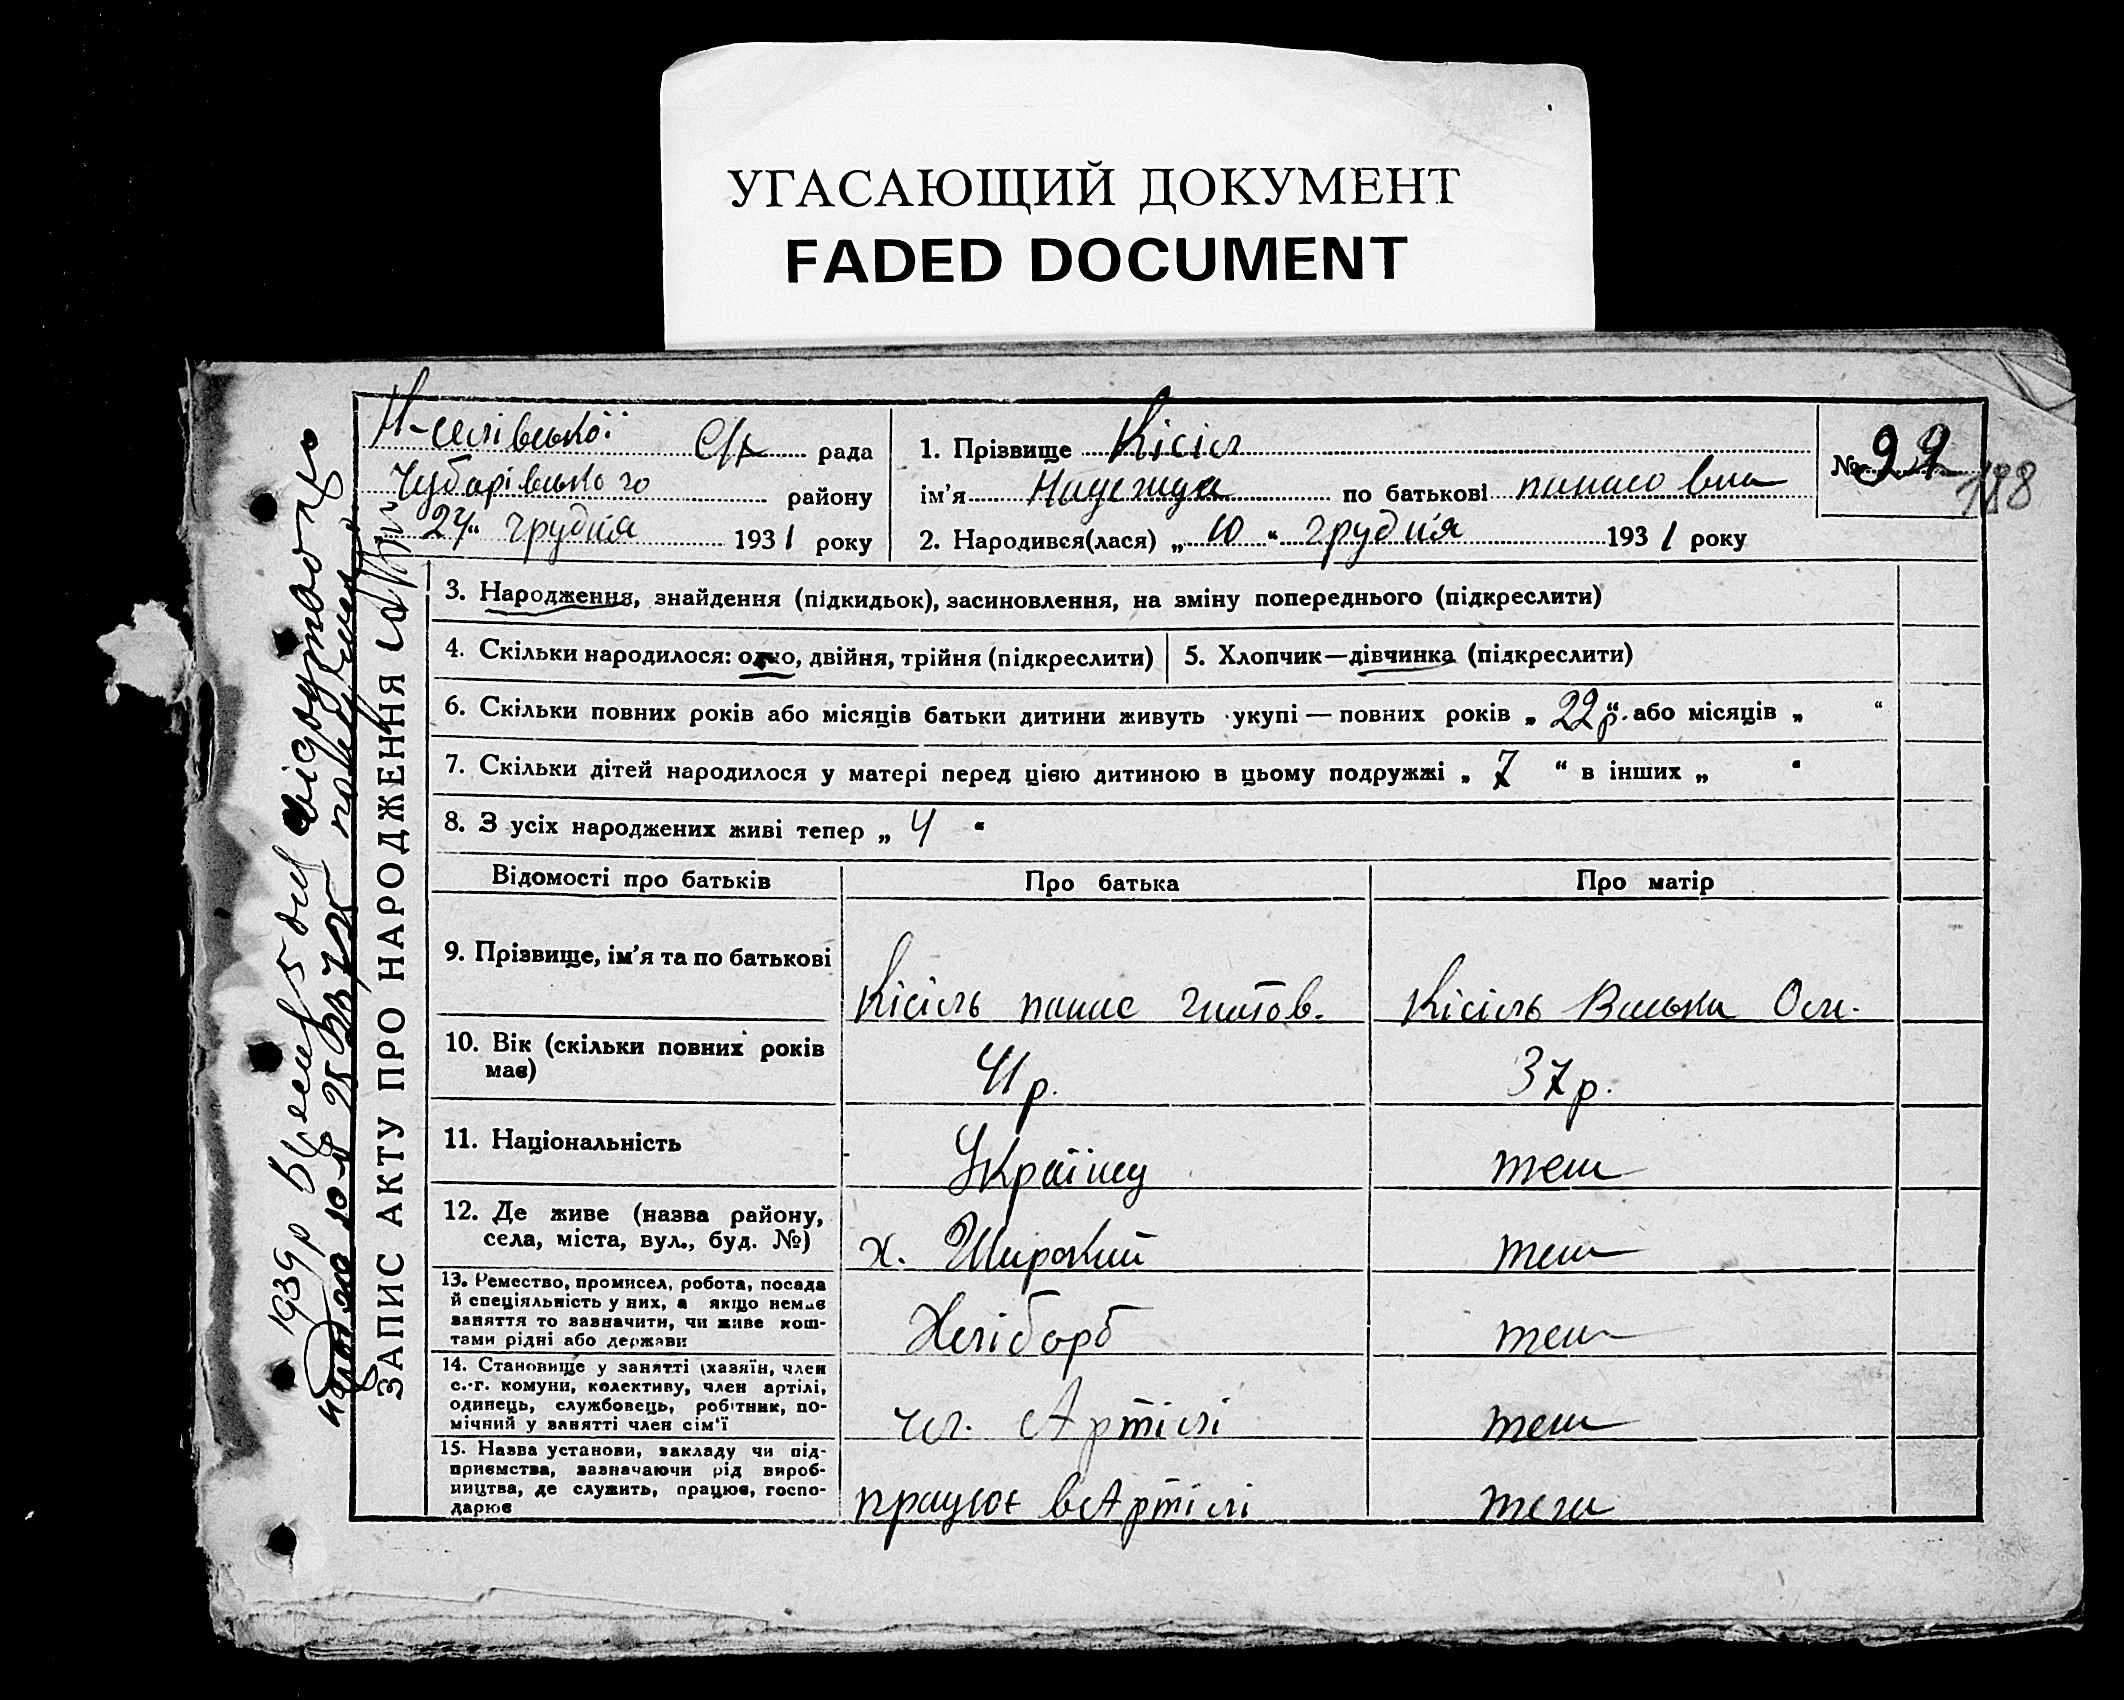 УГАСАЮЩИЙ ДОКУМЕНТ
FADED DOCUMENT
Н-селівської С/р рада
Чубарівського району
24" грудня 1931 року
1. Прізвище Кісіль
ім'я Надежда по батькові панасовна
2. Народився(лася) „ 10 " грудня 1931 року
№ 99
188
3. Народження, знайдення (підкидьок), засиновлення, на зміну попереднього (підкреслити)
4. Скільки народилося: одно, двійня, трійня (підкреслити)
5. Хлопчик—дівчинка (підкреслити)
6. Скільки повних років або місяців батьки дитини живуть укупі — повних років „ 22 р". або місяців „ "
7. Скільки дітей народилося у матері перед цією дитиною в цьому подружжі „ 7 " в інших „ "
8. З усіх народжених живі тепер „ 4 "
Відомості про батьків
Про батька
Про матір
9. Прізвище, ім'я та по батькові
Кісіль панас
Кісіль
10. Вік (скільки повних років
має)
41р.
37р.
11. Національність
Українц
теш
12. Де живе (назва району,
села, міста, вул., буд. №)
х. Широкий
теш
13. Ремество, промисел, робота, посада
й спеціяльність у них, а якщо немає
заняття то зазначити, чи живе кош-
тами рідні або держави
Хліборб
теш
14. Становище у занятті (хазяїн, член
с.-г. комуни, колективу, член артілі,
одинець, службовець, робітник, по-
мічний у занятті член сім'ї
чл. Артілі
теш
15. Назва установи, закладу чи під-
приємства, зазначаючи рід вироб-
ництва, де служить, працює, госпо-
дарює
працює в Артілі
теш
ЗАПИС АКТУ ПРО НАРОДЖЕННЯ
1939р